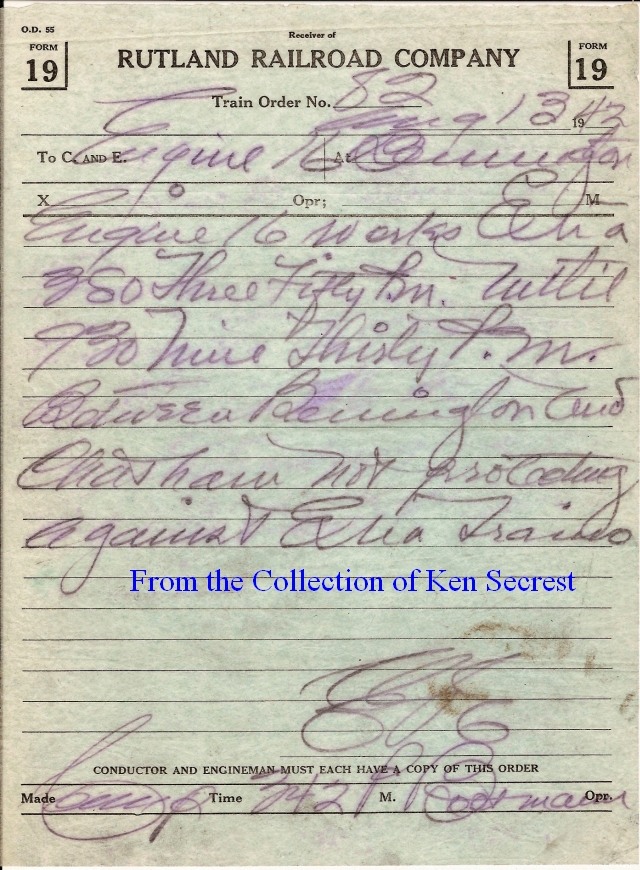 O.D. 55
FORM 19
Receiver of
RUTLAND RAILROAD COMPANY
FORM 19
Train Order No. 82
Aug 13 1943
To C. AND E. Engine 16 At Bennington
X Opr; M
Engine 16 works Extra
350 Three Fifty P.m. Until
930 Nine Thirty P.m.
Between Bennington and
Chatham not protecting
against Extra Trains
From the Collection of Ken Secrest
CONDUCTOR AND ENGINEMAN MUST EACH HAVE A COPY OF THIS ORDER
Made Time 342 P M. Opr.